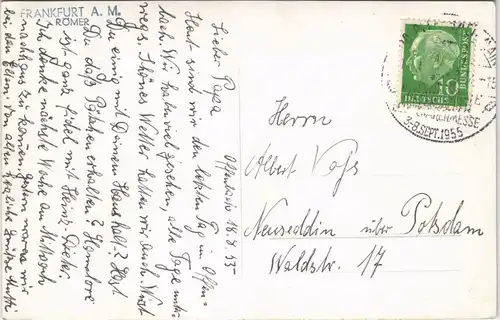 FRANKFURT A. M.
RÖMER
Offenbach 18.8.55
Lieber Papa
Heut sind wir den letzten Tag in Offen-
bach. Wir haben viel gesehen, alle Tage unter-
wegs. Schönes Wetter hatten wir auch. Wirst
Du einig mit Deinem Haushalt? Hast
Du das Päckchen erhalten? Hannelore
ist ganz fidel mit Heinz-Dieter.
Ich denke nächste Woche am Mittwoch
nachhaus zu kommen gestern waren wir
bei den Eltern. Von allen herzliche Grüsse Mutti
10
DEUTSCHE
BUNDESPOST
MESSE
3.-8. SEPT. 1955
Herrn
Albert Voss
Neuseddin über Potsdam
Waldstr. 17